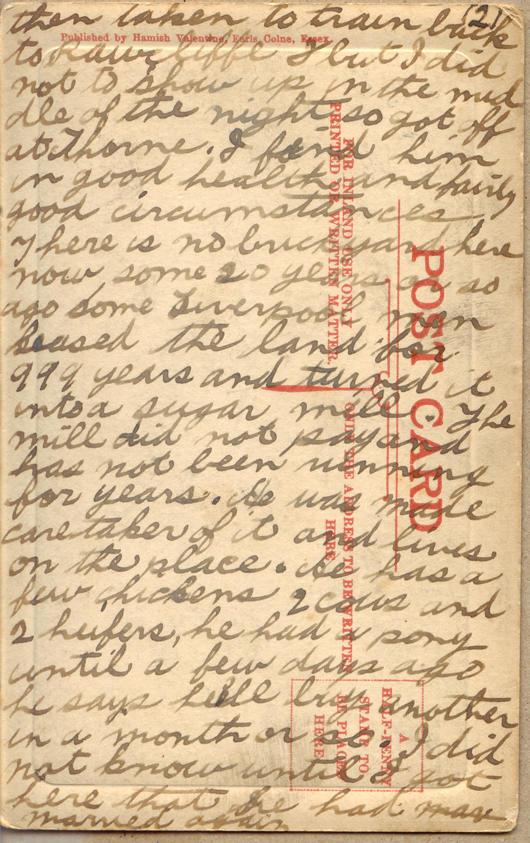 (2)
then taken to train back
Published by Hamish Valentine, Earls Colne, Essex.
to Rawcliffe but I did
not to show up in the mid
dle of the night so got off
at Thorne. I find him
in good health and fairly
good circumstances.
There is no brickyard here
now some 20 years or so
ago some Liverpool men
leased the land for
999 years and turned it
into a sugar mill. The
mill did not pay and
has not been running
for years. He was made
caretaker of it and lives
on the place. He has a
few chickens 2 cows and
2 heifers, he had a pony
until a few days ago
he says he'll buy another
in a month or so. I did
not know until I got
here that he had mar
married again
POST CARD
FOR INLAND USE ONLY
PRINTED OR WRITTEN MATTER.
ONLY THE ADDRESS TO BE WRITTEN
HERE
A
HALF-PENNY
STAMP TO
BE PLACED
HERE